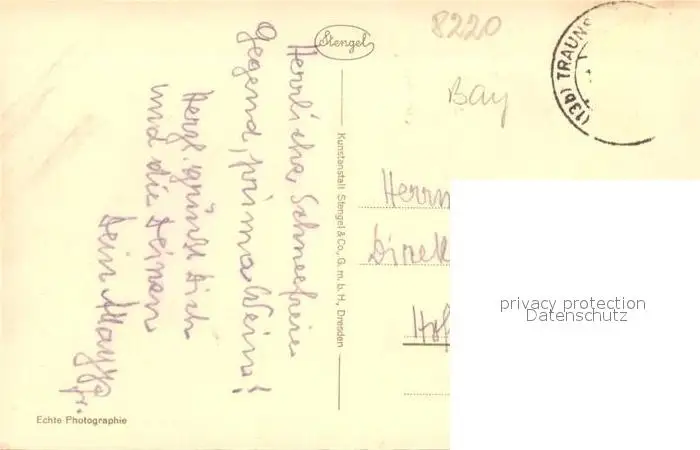 Stengel
8220
Bay
(13b) TRAUNS
Herrliche Schneefreie
Gegend, prima Wein!
Herzl. grüßt Dich
und die Deinen
Dein
jr.
Kunstanstalt Stengel & Co., G. m. b. H., Dresden
Herrn
Direk
Hof
privacy protection
Datenschutz
Echte Photographie